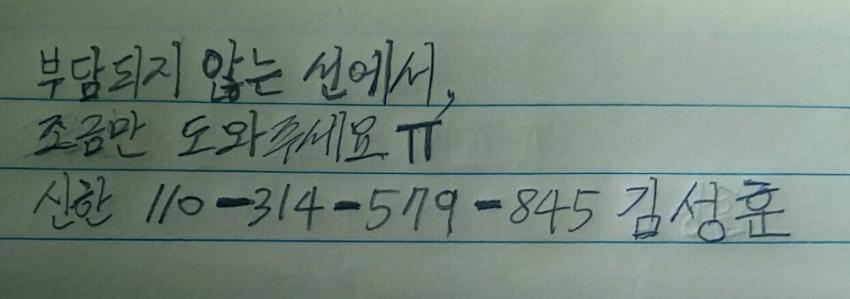 부담되지 않는 선에서,
조금만 도와주세요 ㅠ
신한 110-314-579-845 김성훈